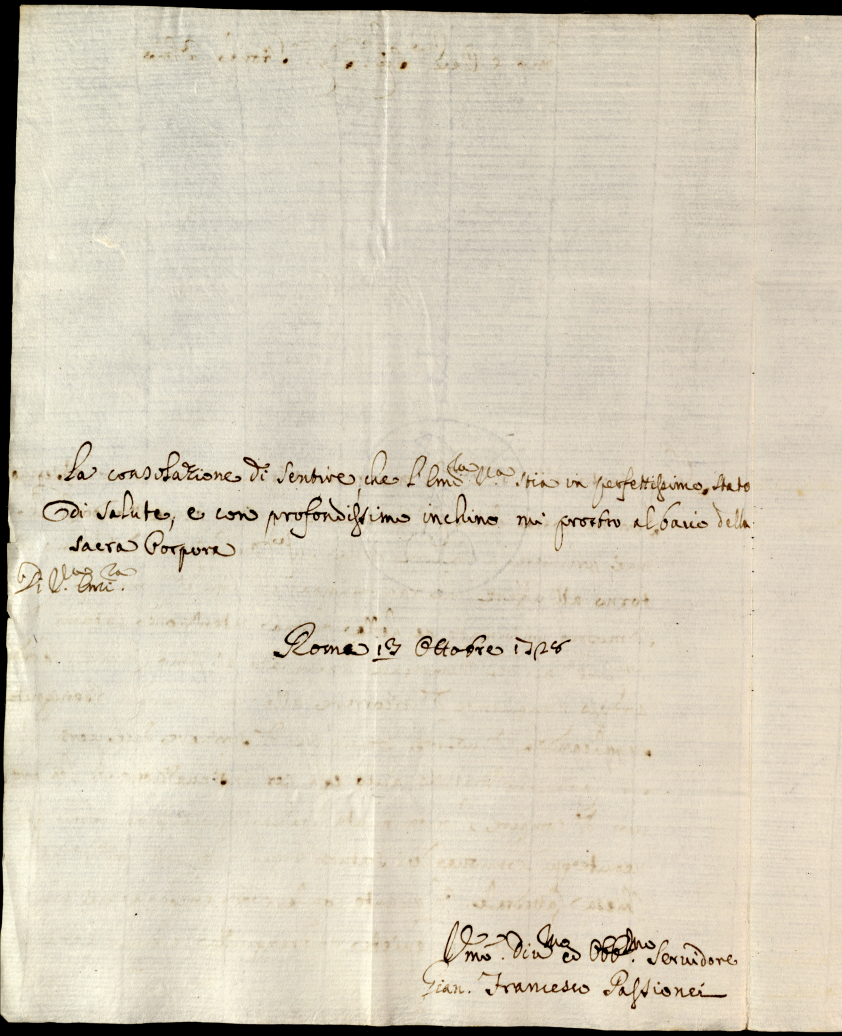 la consolazione di sentire, che l'Em:za V:ra stia in perfettissimo stato
di salute, e con profondissimo inchino mi prostro al bacio della
sacra Porpora
Di V:ra Em:za
Roma 13 Ottobre 1728
Vmo: Div:mo ed Obb:mo Servidore
Gian. Francesco Passionei